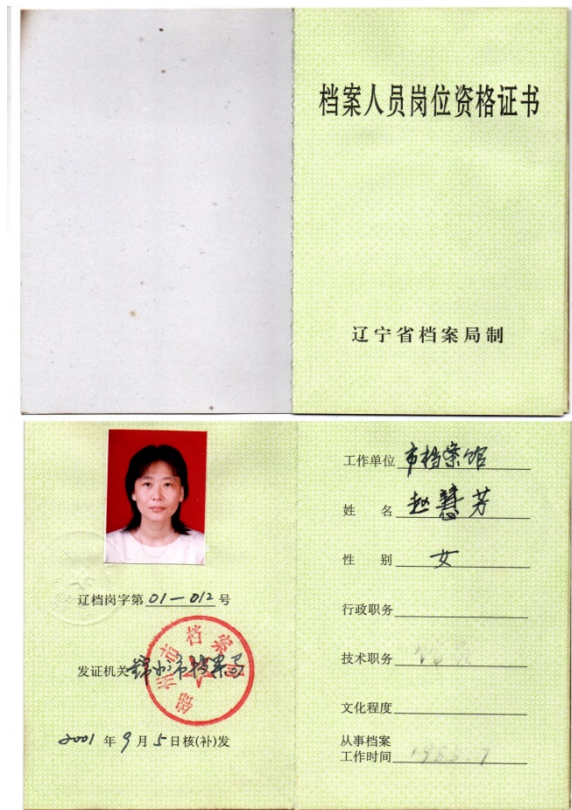 档案人员岗位资格证书
辽宁省档案局制
辽档岗字第01—012号
发证机关 锦州市档案局
锦州市档案局
2001年9月5日核(补)发
工作单位 市档案馆
姓 名 赵慧芳
性 别 女
行政职务
技术职务
文化程度
从事档案
工作时间